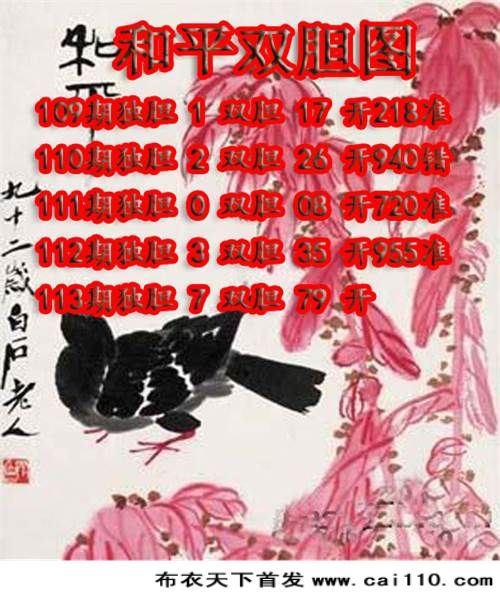 和平双胆图
109期独胆 1 双胆 17 开218准
110期独胆 2 双胆 26 开940错
111期独胆 0 双胆 08 开720准
112期独胆 3 双胆 35 开955准
113期独胆 7 双胆 79 开
和平
九十二岁白石老人
布衣天下首发 www.cai110.com